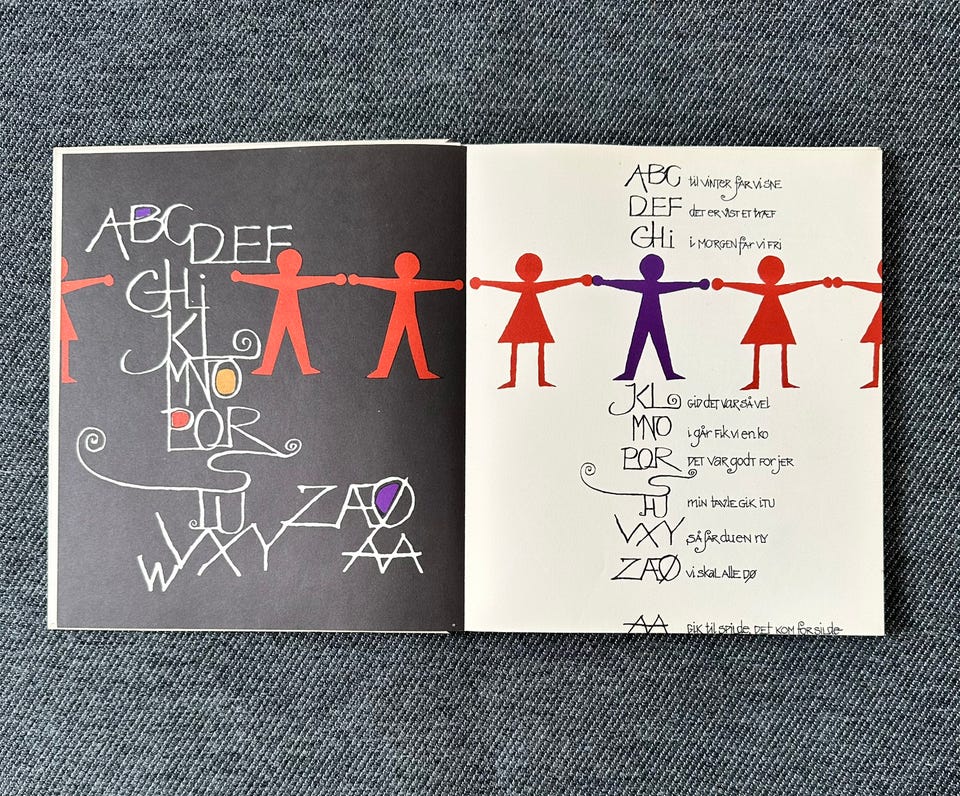 ABC DEF
GHi
JKL
MNO
PQR
S
TU
ZÆØ
WVXY
AA
ABC til vinter får vi sne
DEF det er vist et
GHi i morgen får vi fri
JKL gid det var så vel
MNO i går fik vi en ko
PQR det var godt for jer
S
TU min tavle gik itu
VXY så får du en ny
ZÆØ vi skal alle dø
AA gik til spilde, det kom for silde